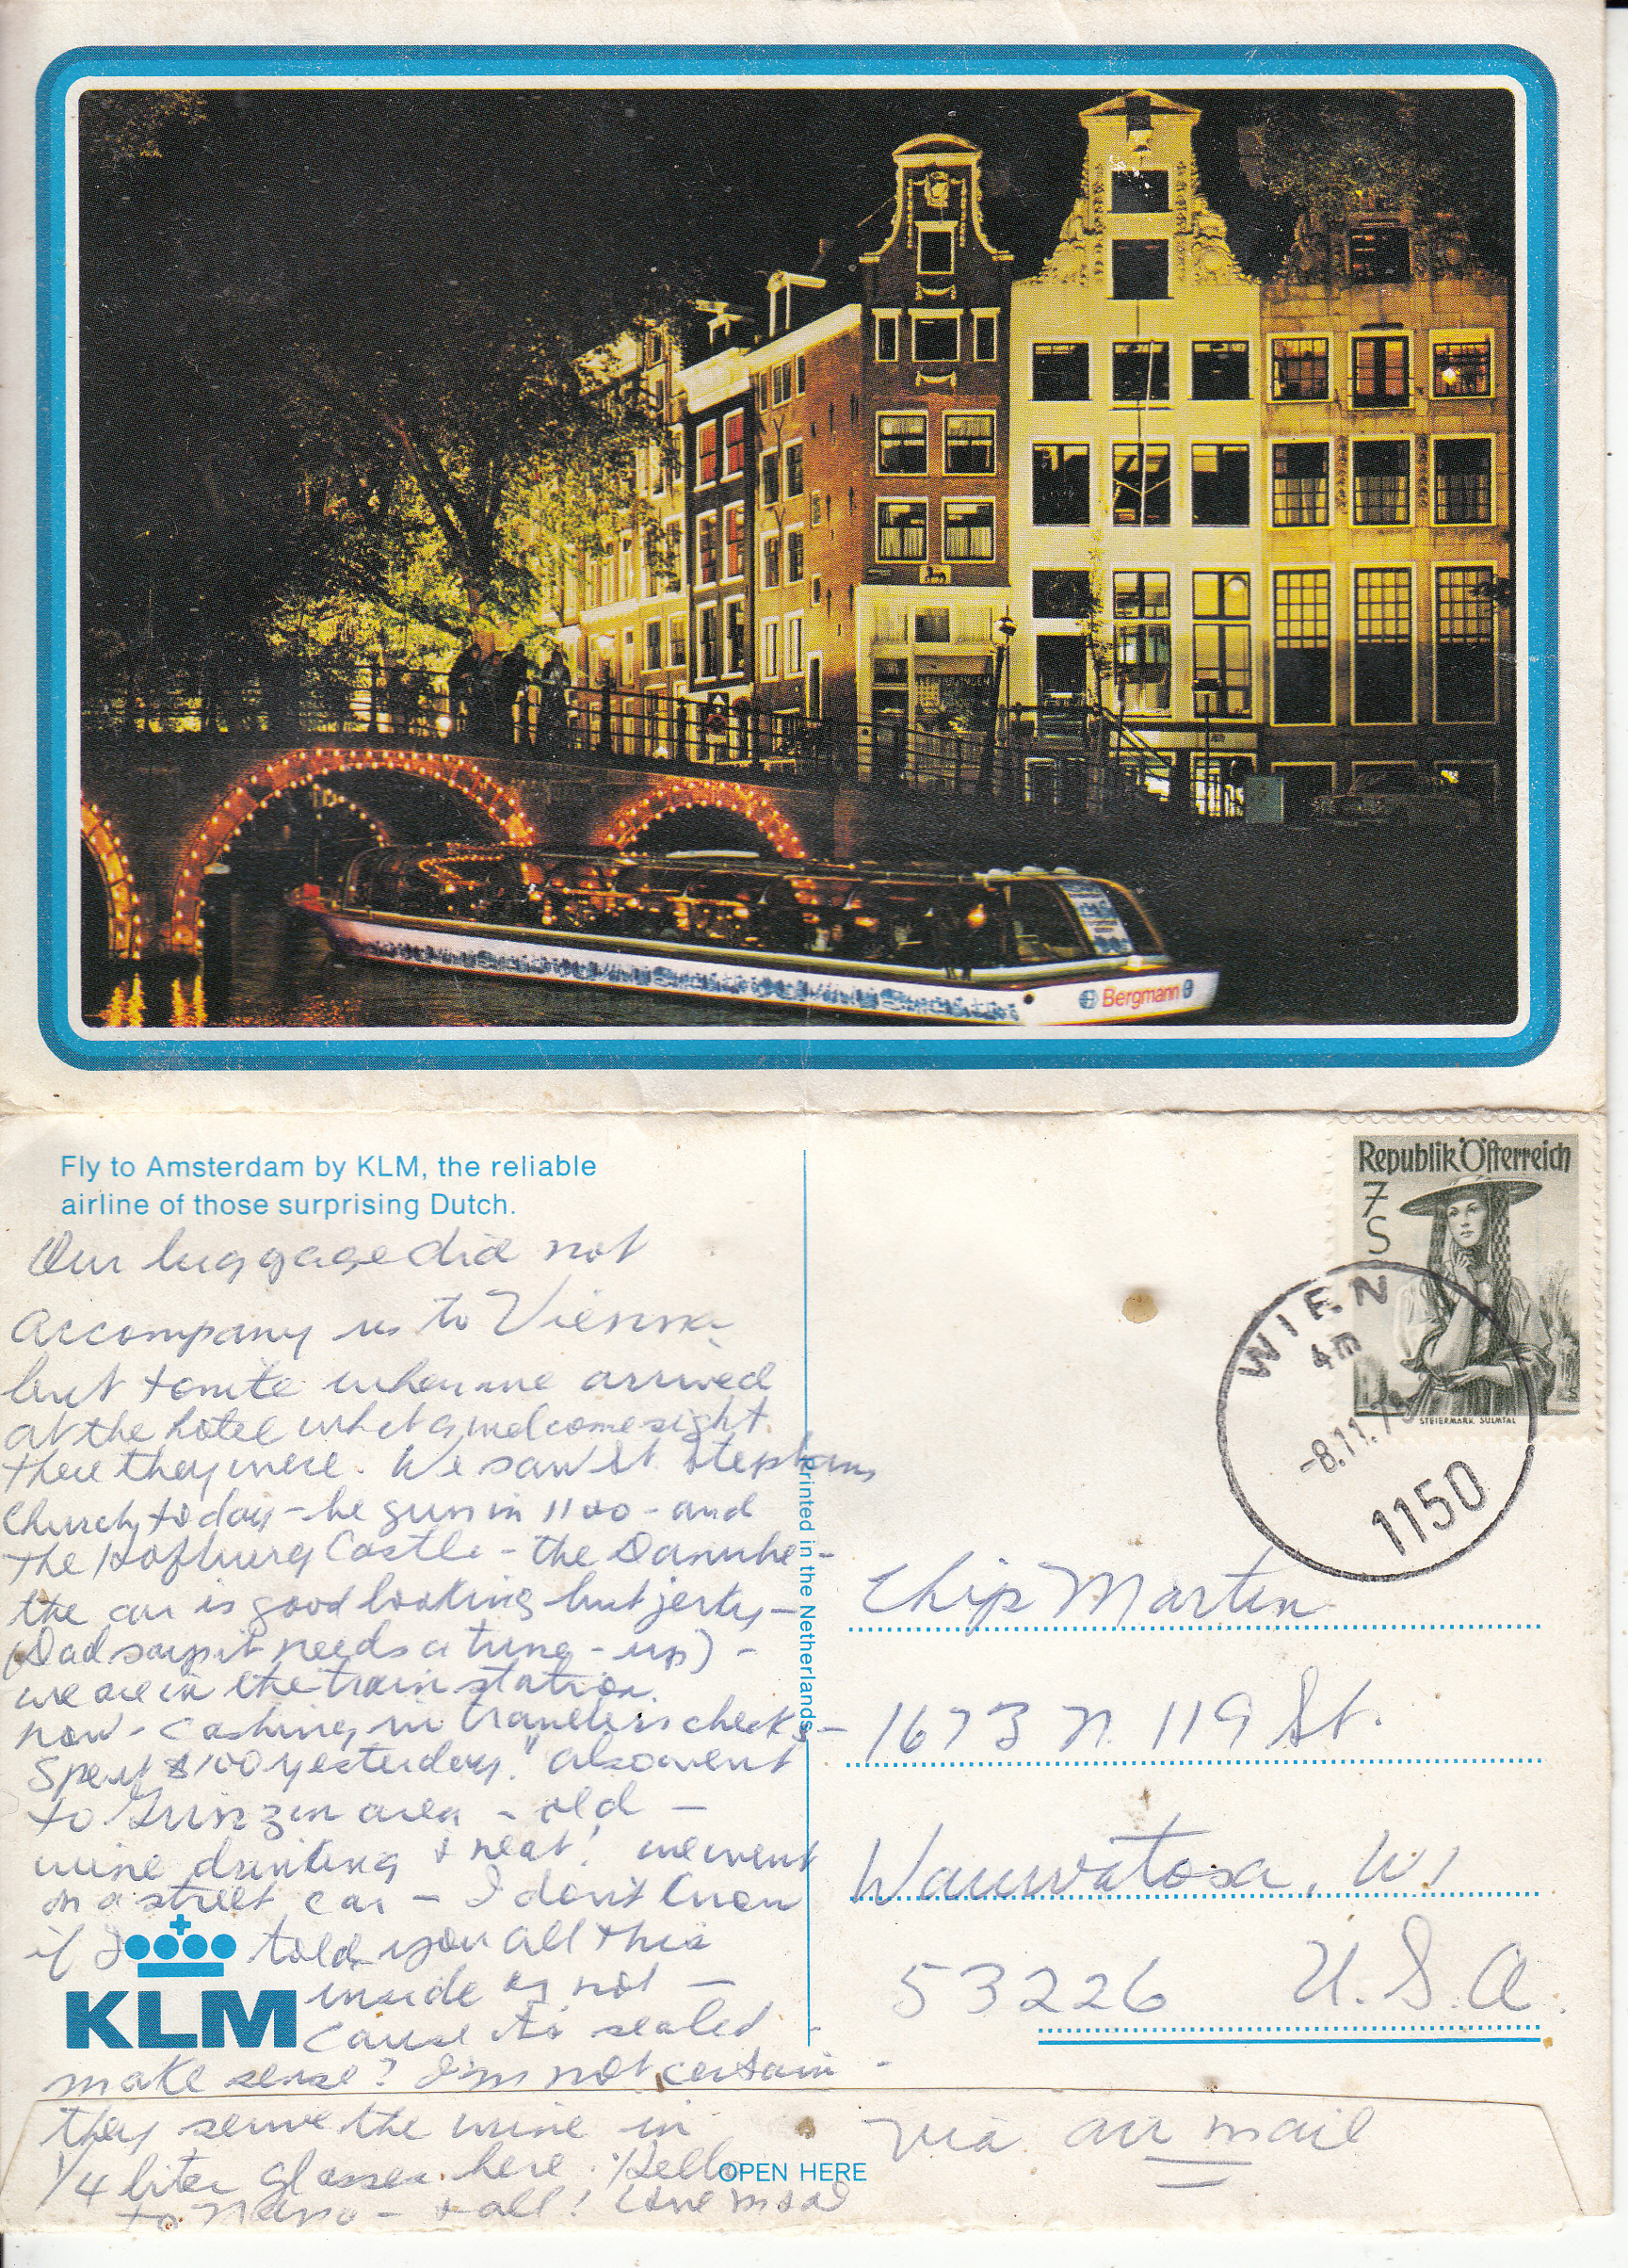 Bergmann
Fly to Amsterdam by KLM, the reliable
airline of those surprising Dutch.
Our luggage did not
accompany us to Vienna
but tonite when we arrived
at the hotel what a welcome sight
there they were. We saw St Stephens
Church today - begun in 1100 - and
the Hofburg Castle - the Danube -
the car is good looking but jerky -
(Dad says it needs a tune-up) -
we are in the train station
now - cashing in travelers checks -
Spent $100 yesterday! also went
to Grinzen area - old -
wine drinking & neat! we went
on a street car - I don't know
if I told you all this
inside or not -
cause its sealed -
make sense? I'm not certain -
they serve the wine in
1/4 liter glasses here. Hello
to Nano - & all! Love
KLM
OPEN HERE
Printed in the Netherlands
Republik Österreich
7
S
STEIERMARK, SULMTAL
WIEN
-8.11.7
1150
Chip Martin
1673 N. 119 St.
Wauwatosa, WI
53226 U.S.A.
Via air mail